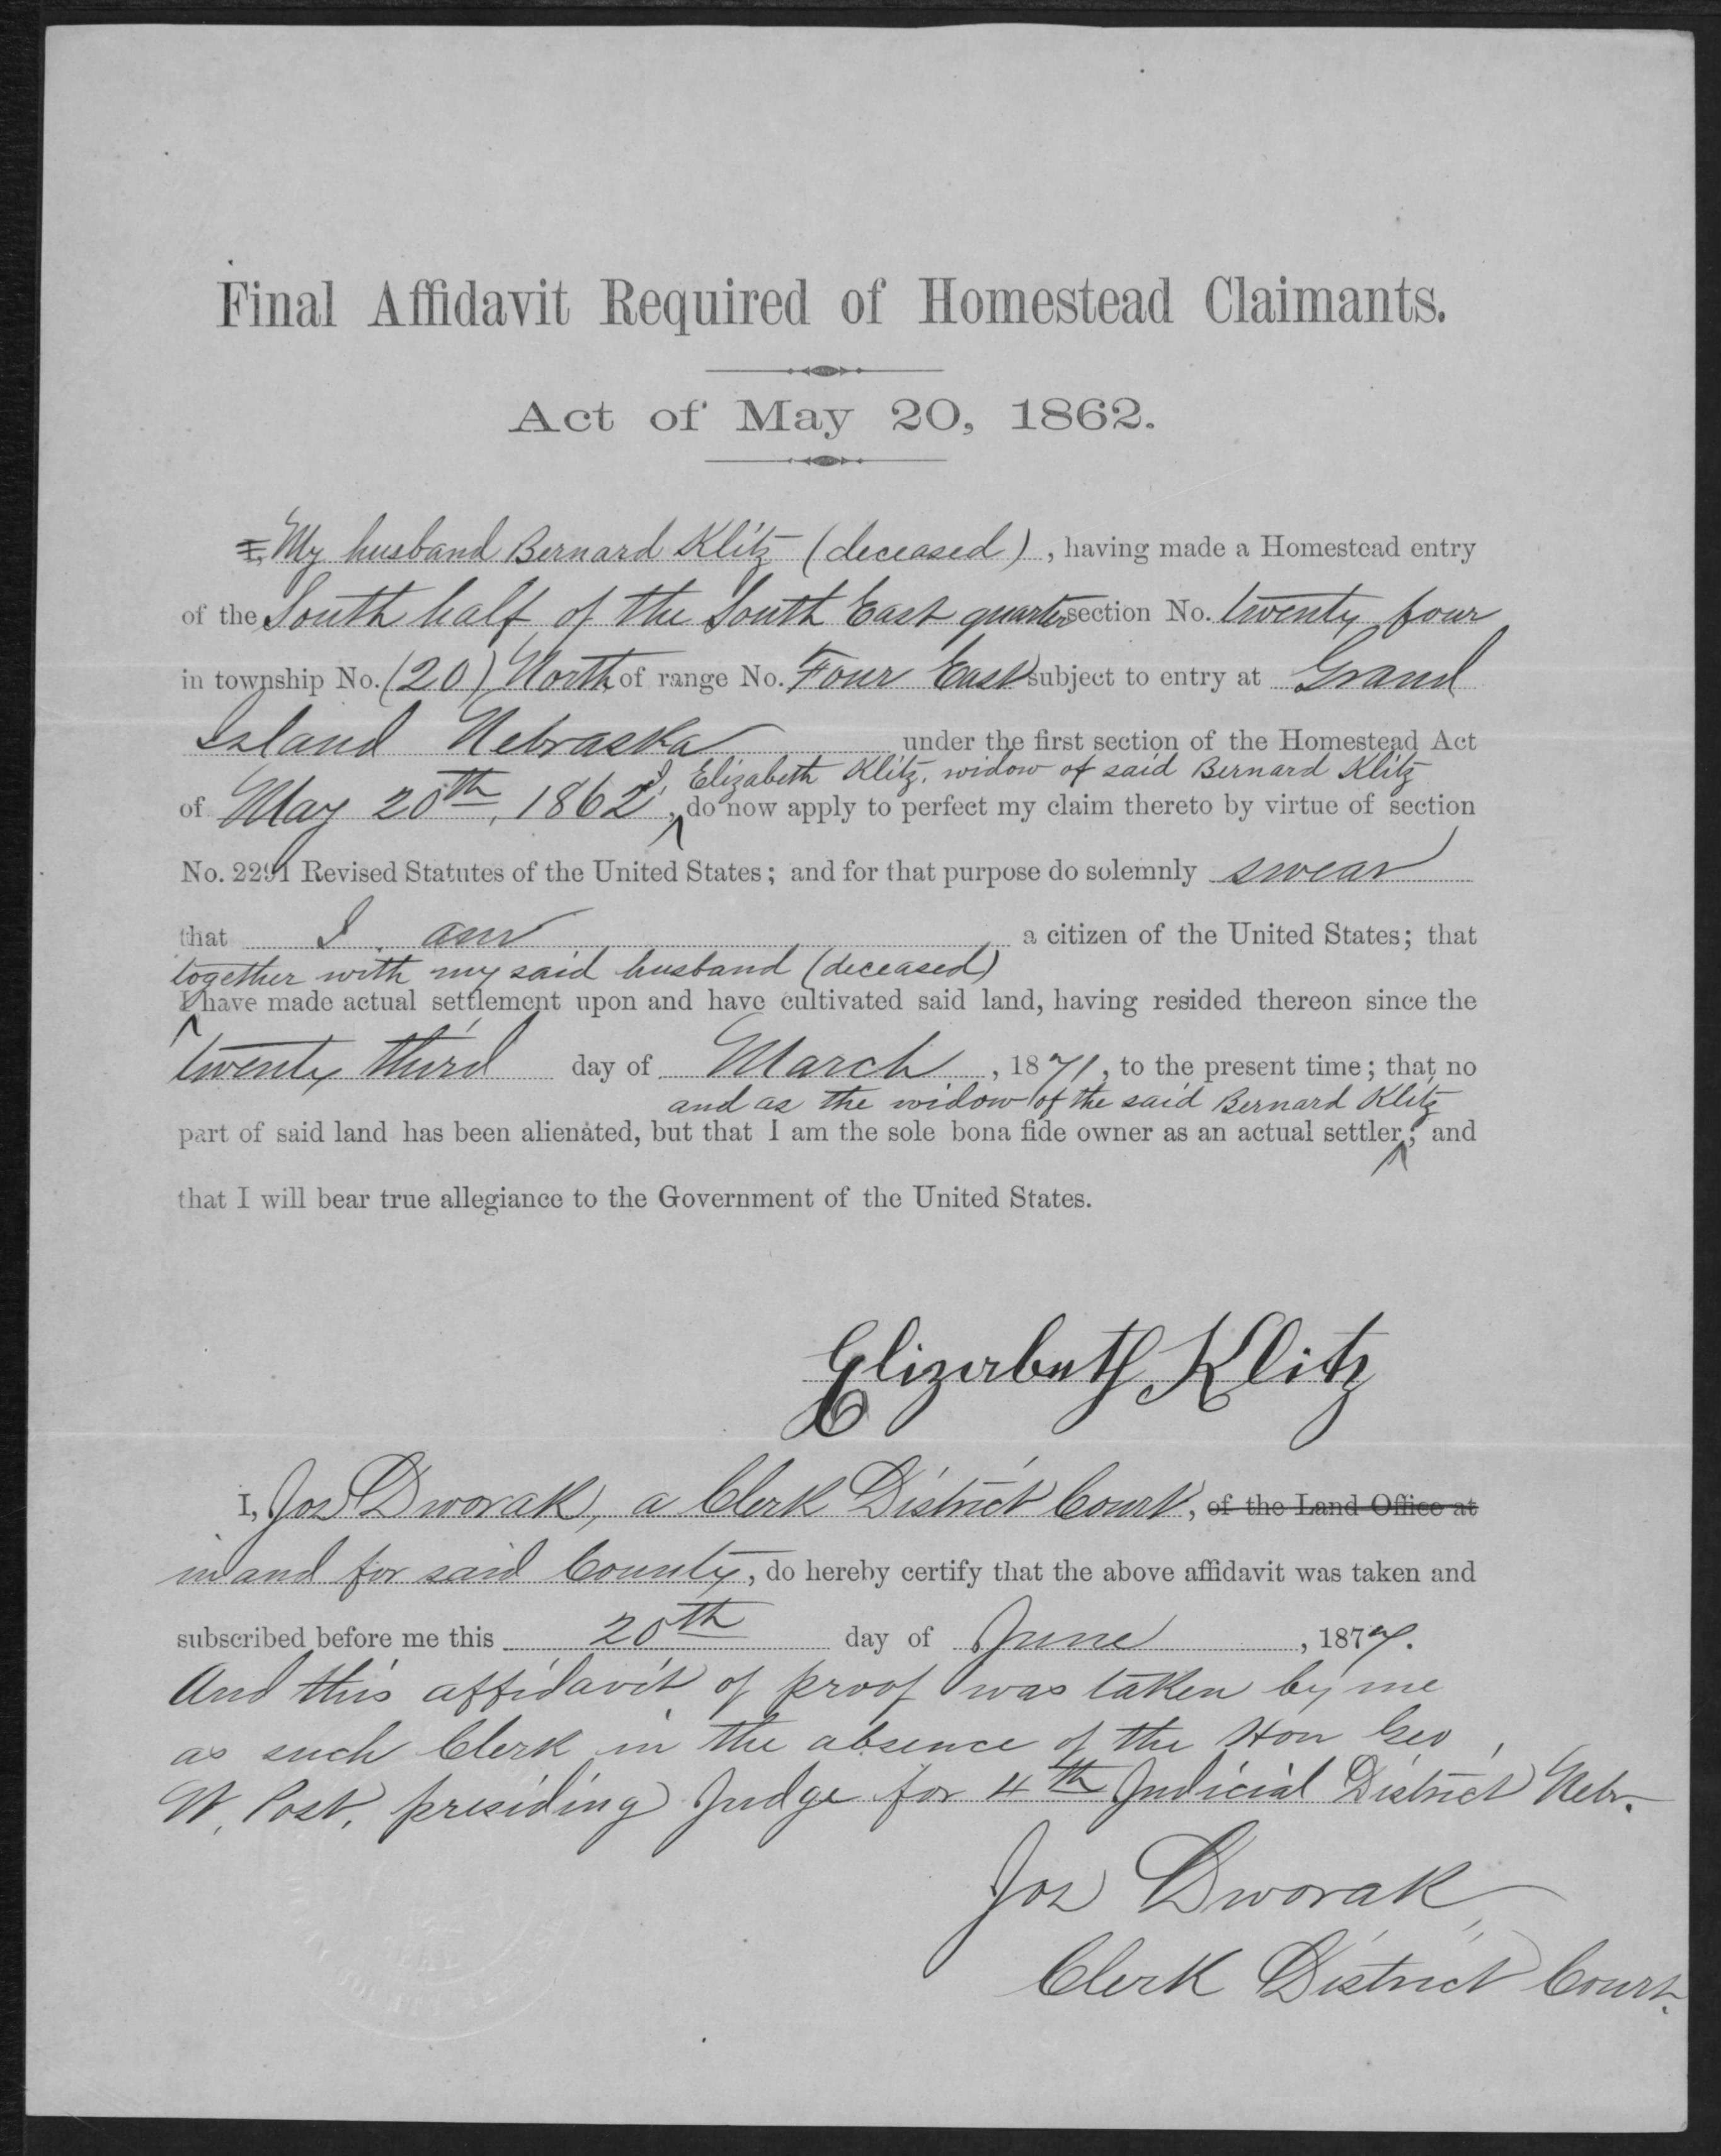 Final Affidavit Required of Homestead Claimants.
Act of May 20, 1862.
I, My husband Bernard Klitz (deceased), having made a Homestead entry
of the South half of the South East quarter section No. twenty four
in township No. (20) North of range No. Four East subject to entry at Grand
Island Nebraska under the first section of the Homestead Act
I, Elizabeth Klitz, widow of said Bernard Klitz
of May 20th, 1862, do now apply to perfect my claim thereto by virtue of section
No. 2291 Revised Statutes of the United States; and for that purpose do solemnly swear
that I am a citizen of the United States; that
together with my said husband (deceased)
I have made actual settlement upon and have cultivated said land, having resided thereon since the
twenty third day of March, 1871, to the present time; that no
and as the widow of the said Bernard Klitz
part of said land has been alienated, but that I am the sole bona fide owner as an actual settler; and
that I will bear true allegiance to the Government of the United States.
Elizabeth Klitz
I, Jos Dworak, a Clerk District Court, of the Land Office at
in and for said County, do hereby certify that the above affidavit was taken and
subscribed before me this 20th day of June, 1877.
And this affidavit of proof was taken by me
as such Clerk in the absence of the Hon Geo
W. Post, presiding Judge for 4th Judicial District Nebr.
Jos Dworak
Clerk District Court.